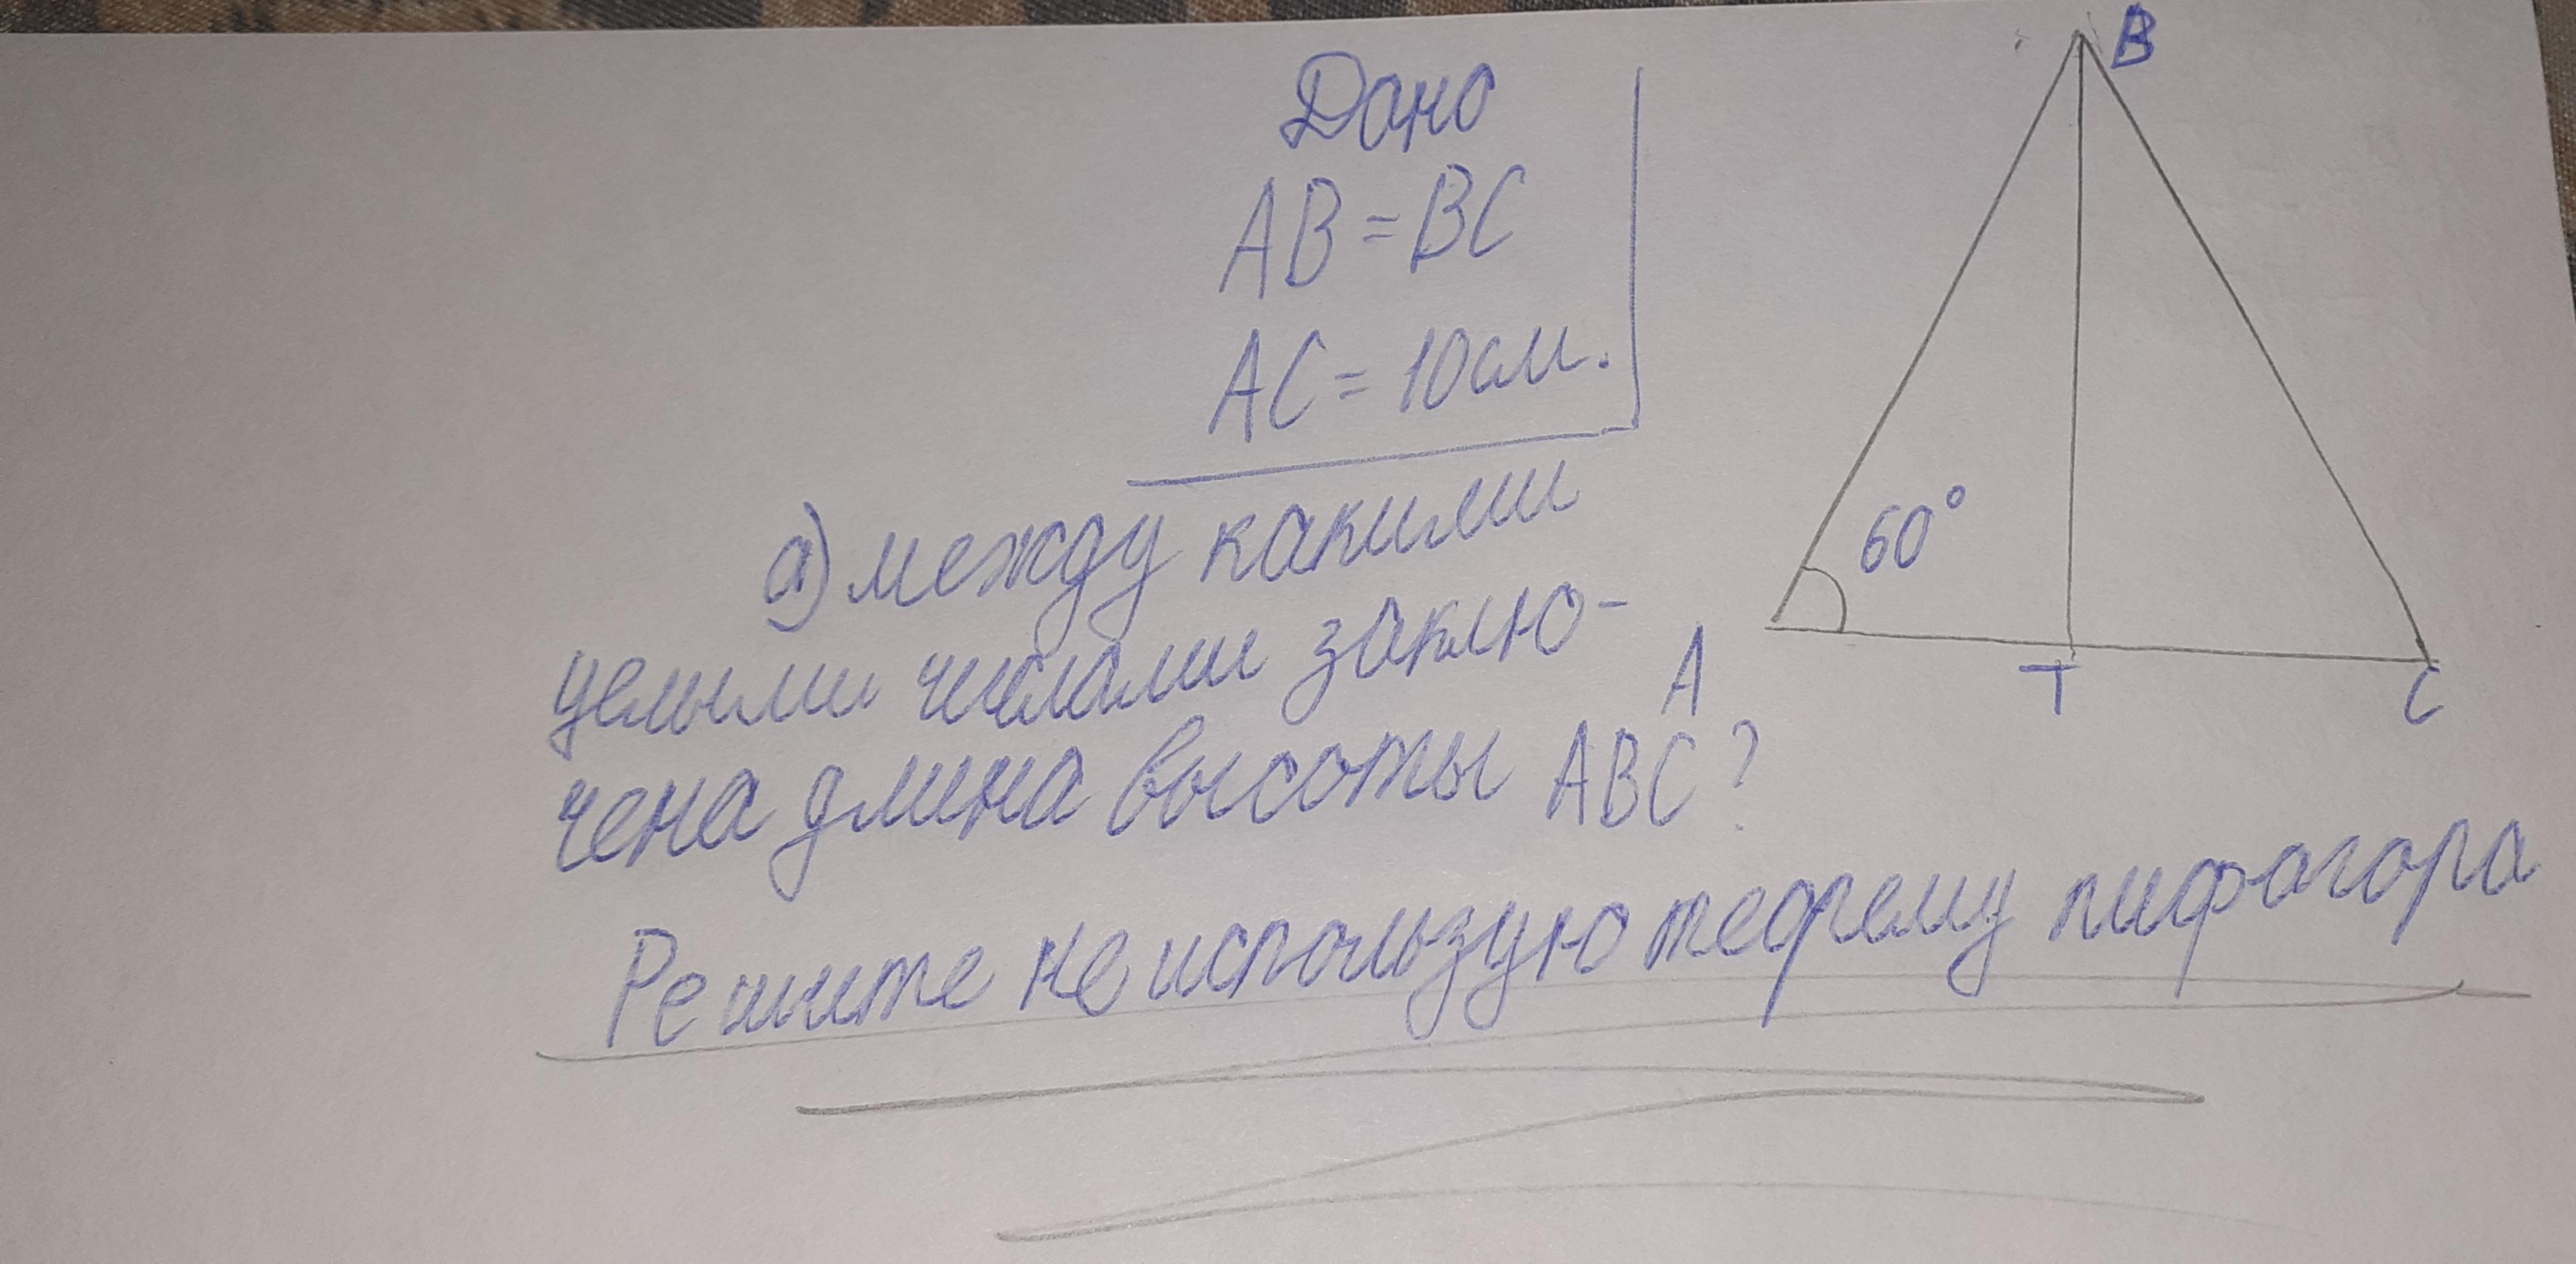 Дано
AB = BC
AC = 10 см.
а) между какими
целыми числами заклю-
чена длина высоты ABC?
Решите не используя теорему пифагора
B
60°
A
T
C